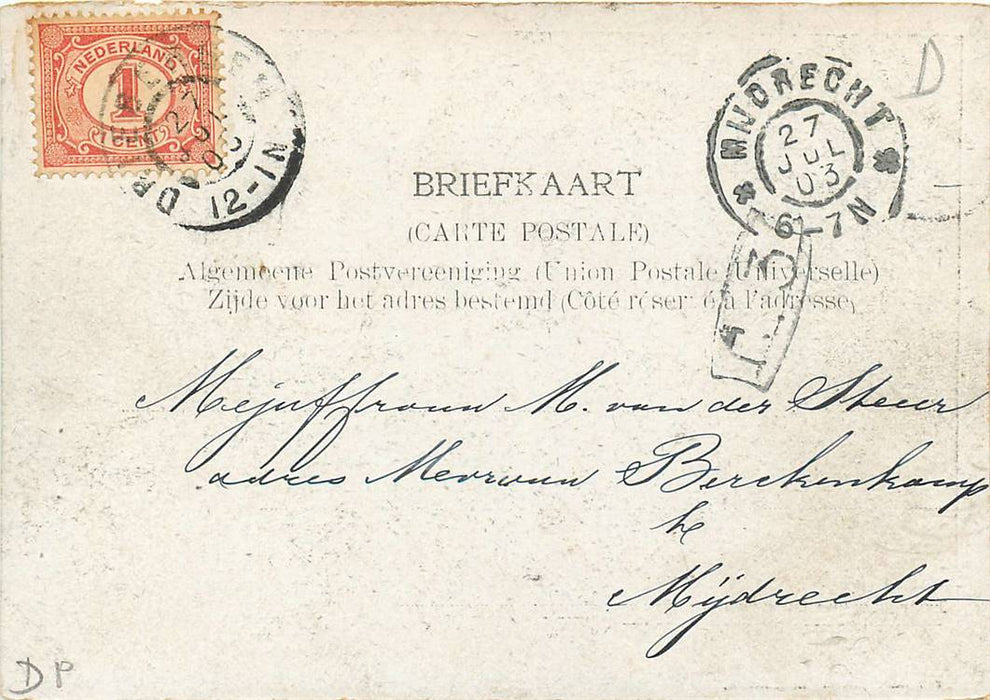 NEDERLAND
1
1 CENT
12-1N
MIJDRECHT
27
JUL
03
6-7N
D
BRIEFKAART
(CARTE POSTALE)
Algemeene Postvereeniging (Union Postale Universelle)
Zijde voor het adres bestemd (Côté réservé à l'adresse)
Mejuffrouw M. van der Steur
adres Mevrouw Berckenkamp
te
Mijdrecht
DP